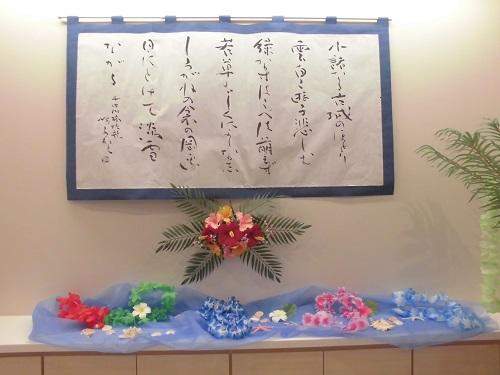 小諸なる古城のほとり
雲白く遊子悲しむ
緑なすはこべは萌えず
若草もしくによしなし
しろがねの衾の岡辺
日にとけて淡雪
ながる